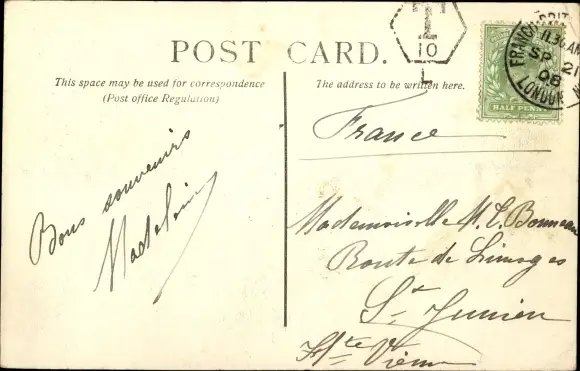 POST CARD.
T
10
L
FRANCO-BRIT
11.30AM
SP 2
08
LONDON
HALF PENNY
This space may be used for correspondence
(Post office Regulation)
The address to be written here.
Bons souvenirs
Madeleine
France
Mademoiselle M. L. Bonneau
Route de Limoges
St Junien
Hte Vienne